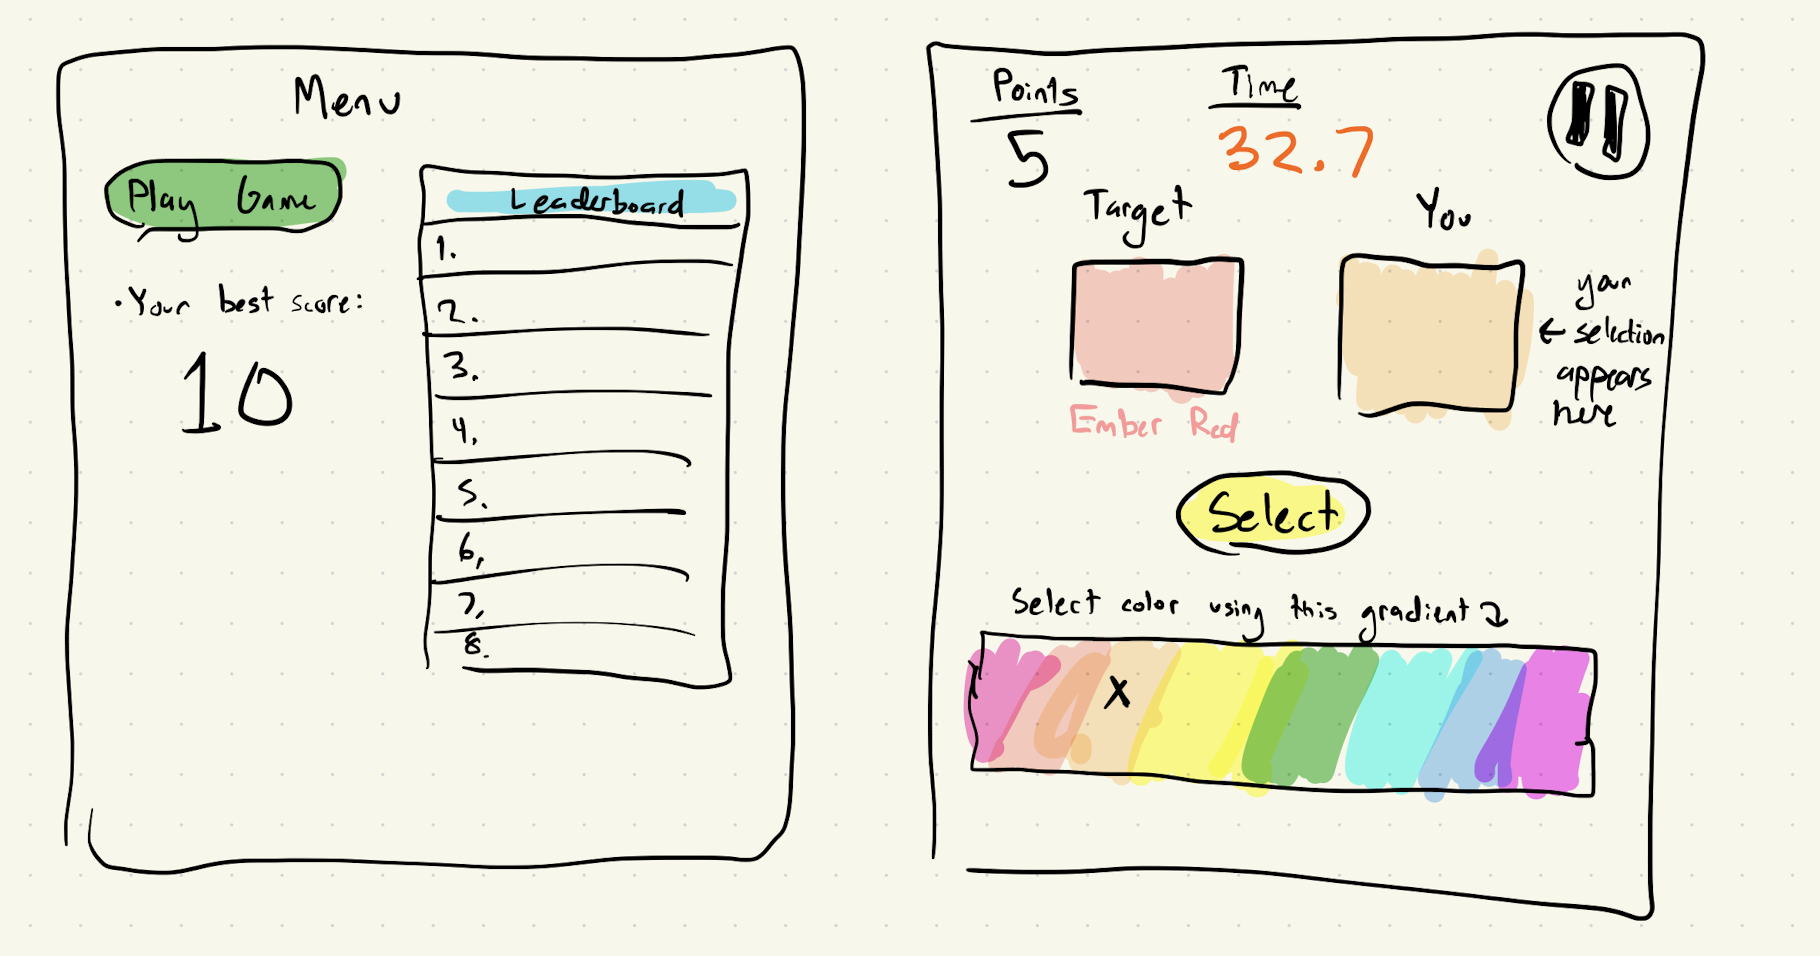 Menu
Play Game
• Your best score:
10
Leaderboard
1.
2.
3.
4.
5.
6.
7.
8.
Points
5
Time
32.7
Target
You
Ember Red
your
← selection
appears
here
Select
Select color using this gradient
X